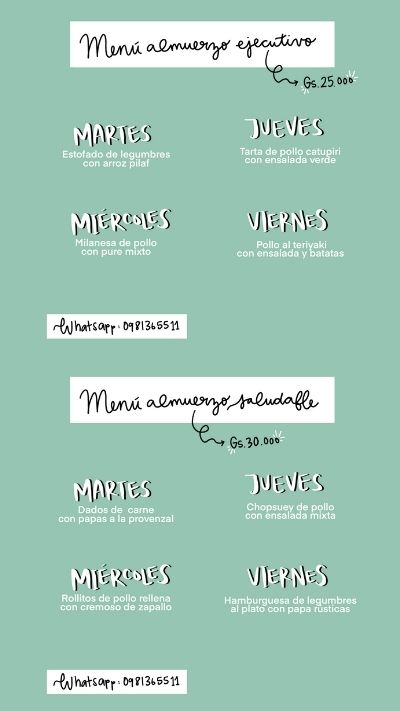 Menú almuerzo ejecutivo
Gs.25.000
MARTES
Estofado de legumbres
con arroz pilaf
JUEVES
Tarta de pollo catupiri
con ensalada verde
MIÉRCOLES
Milanesa de pollo
con pure mixto
VIERNES
Pollo al teriyaki
con ensalada y batatas
Whatsapp: 0981365511
Menú almuerzo saludable
Gs.30.000
MARTES
Dados de carne
con papas a la provenzal
JUEVES
Chopsuey de pollo
con ensalada mixta
MIÉRCOLES
Rollitos de pollo rellena
con cremoso de zapallo
VIERNES
Hamburguesa de legumbres
al plato con papa rusticas
Whatsapp: 0981365511